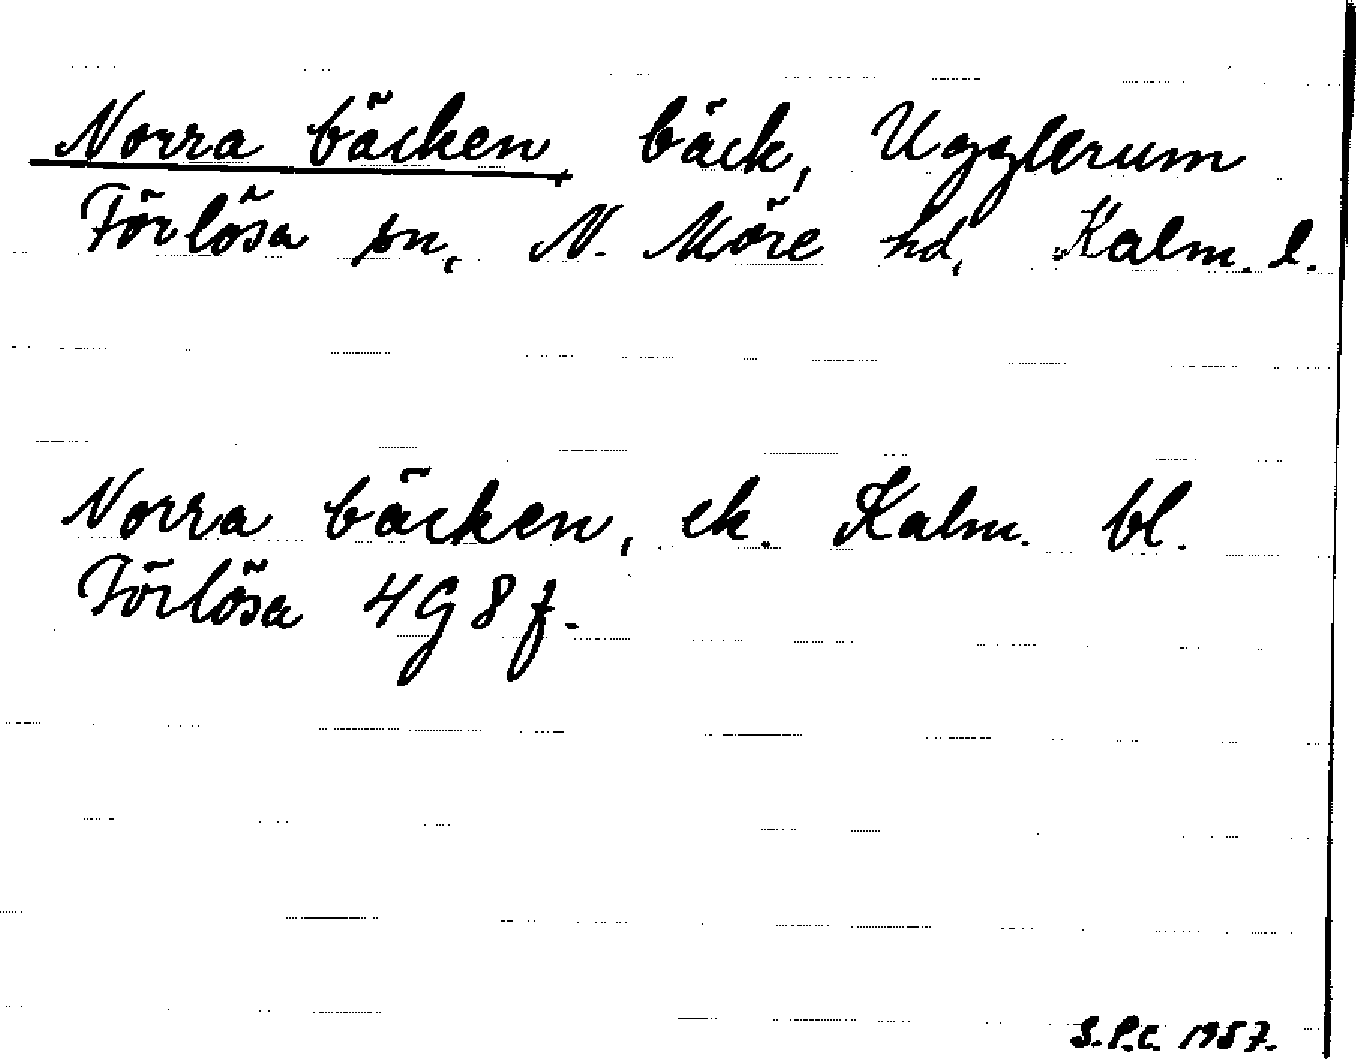 Norra bäcken, bäck, Ugglerum
Förlösa sn, N. Möre hd, Kalm. l.
Norra bäcken, ek. Kalm. bl.
Förlösa 4G8f.
S.P.C. 1957.